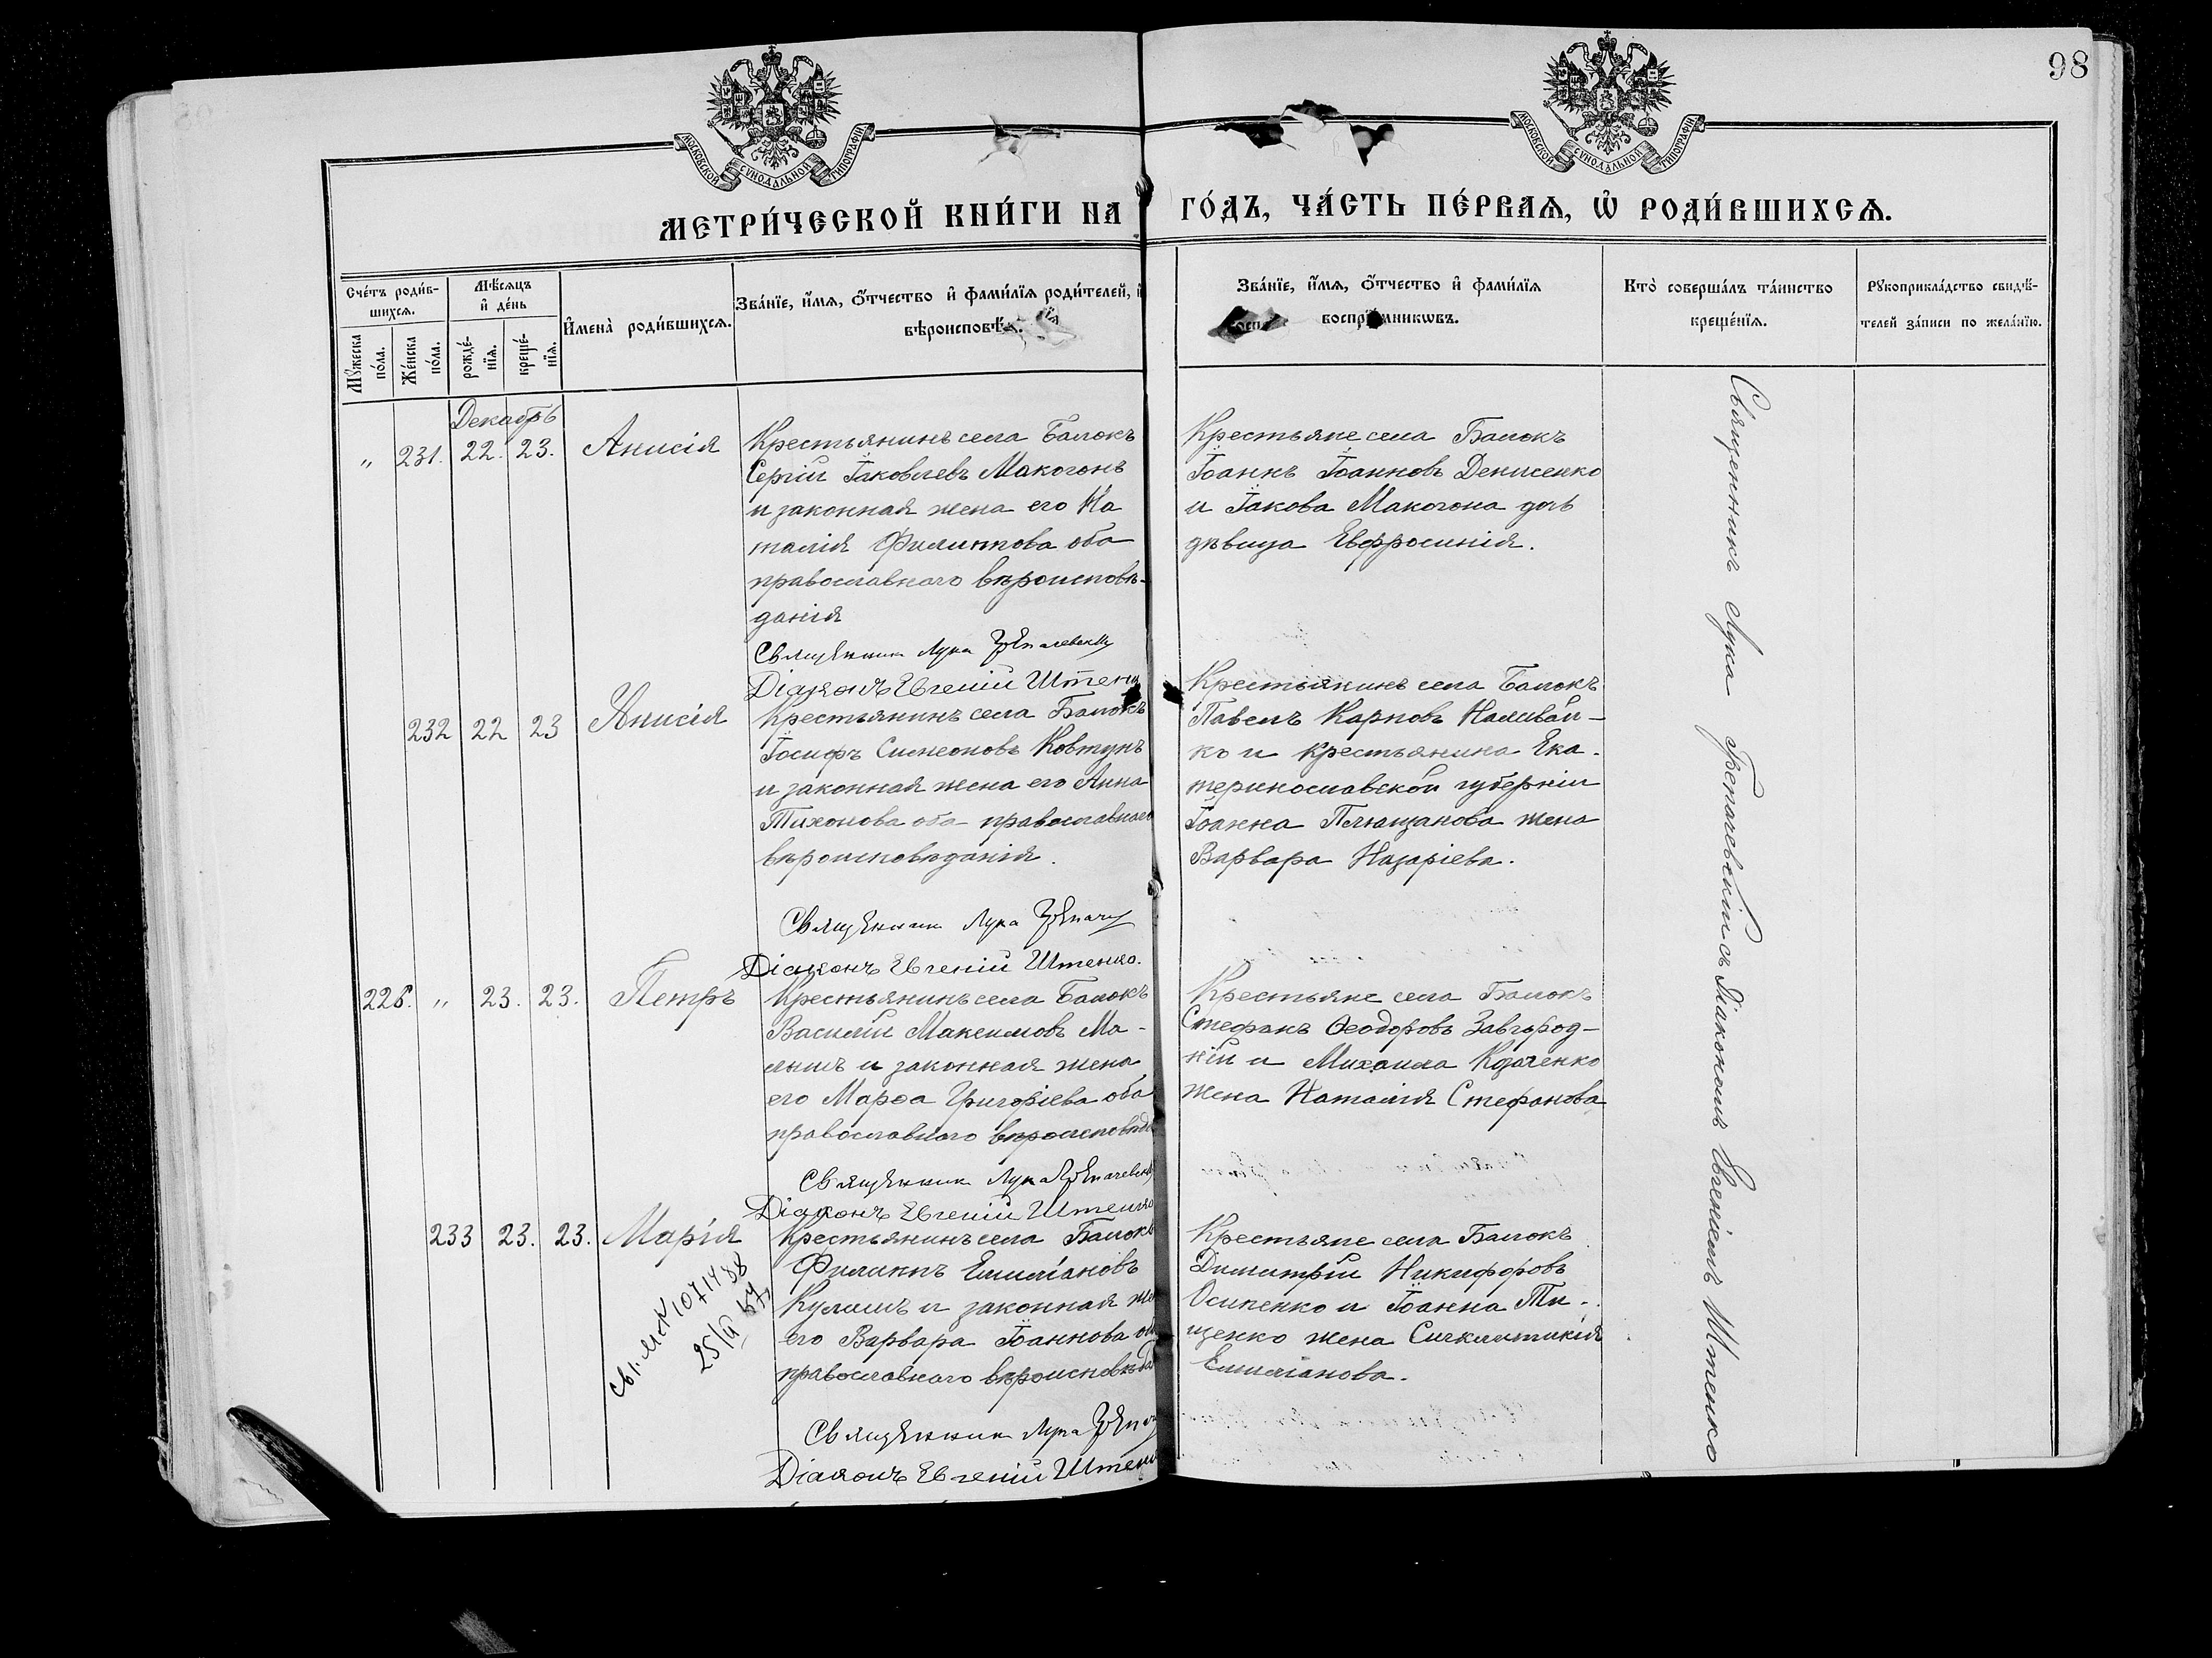 98
МОСКОВСКОЙ СУНОДАЛЬНОЙ ТИПОГРАФІИ
МОСКОВСКОЙ СУНОДАЛЬНОЙ ТИПОГРАФІИ
МЕТРИ́ЧЕСКОЙ КНИ́ГИ НА ГО́ДЪ, ЧА́СТЬ ПЕ́РВАѦ, Ѡ РОДИ́ВШИХСѦ.
Сче́тъ роди́в-
шихсѧ.
Мꙋжеска
по́ла.
Же́нска
по́ла.
Мѣ́сѧцъ
и҆ де́нь
рожде́-
нїѧ.
креще́-
нїѧ.
И҆мена̀ роди́вшихсѧ.
Зва́нїе, и҆́мѧ, ѻ҆́тчество и҆ фами́лїѧ роди́телей, и҆
вѣроисповѣ
Зва́нїе, и҆́мѧ, ѻ҆́тчество и҆ фами́лїѧ
воспрїе́мникѡвъ.
Кто̀ соверша́лъ та́инство
креще́нїѧ.
Рꙋкоприкла́дство свидѣ́-
телей за́писи по жела́нїю.
Декабрь
" 231. 22. 23. Анисія
Крестьянинъ села Балокъ
Сергій Іаковлевъ Макогонъ
и законная жена его На
талія Филиппова оба
православнаго вѣроисповѣ-
данія
Священник Лука
Діаконъ Евгеній Штен
Крестьяне села Балокъ
Іоаннъ Іоанновъ Денисенко
и Іакова Макогона дочь
дѣвица Евфросинія.
232 22 23 Анисія
Крестьянинъ села Балокъ
Іосифъ Симеоновъ Ковтунъ
и законная жена его Анна
Тихонова оба православнаго
вѣроисповѣданія.
Священник Лука
Діаконъ Евгеній Штенко.
Крестьянинъ села Балокъ
Павелъ Карповъ Наливай-
ко и крестьянина Ека-
теринославской губерніи
Іоанна жена
Варвара Назаріева.
228. " 23. 23. Петръ
Крестьянинъ села Балокъ
Василій Максимовъ Ма-
лышъ и законная жена
его Марѳа Григоріева оба
православнаго вѣроисповѣд
Священник Лука
Діаконъ Евгеній Штенко
Крестьяне села Балокъ
Стефанъ Ѳеодоровъ Завгород-
ній и Михаила
жена Наталія Стефанова
233 23. 23. Марія
Крестьянинъ села Балокъ
Филиппъ Емиліановъ
Кулишъ и законная же
его Варвара Іоаннова об
православнаго вѣроисповѣда
Священник Лука
Діаконъ Евгеній Штен
Крестьяне села Балокъ
Димитрій Никифоровъ
Осипенко и Іоанна Ти-
щенко жена Синклитикія
Емиліанова.
1071488
Священникъ Лука Грепачевскій съ Діакономъ Евгеніемъ Штенко